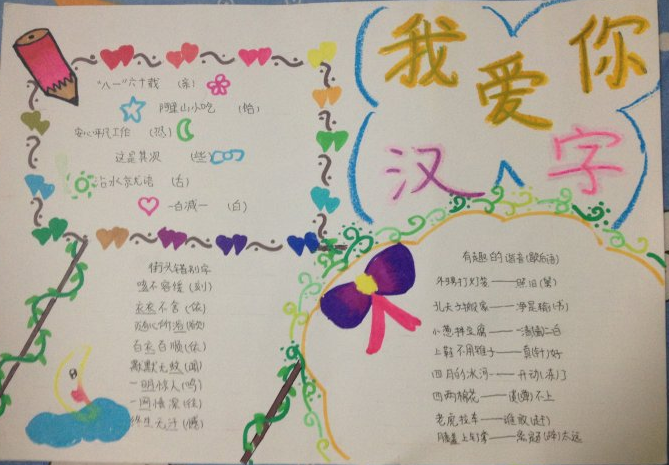 我爱你
汉字
“八一”六十载 (亲)
阿里山小吃 (恰)
安心平凡工作 (恐)
这是其次 (些)
活水京尤语 (舌)
一百减一 (白)
街头错别字
嗑不容缓 (刻)
衣衣不舍 (依)
随心所浴 (欲)
百衣百顺 (依)
默默无蚊 (闻)
一明惊人 (鸣)
一网情深 (往)
终生无汗 (憾)
有趣的谐音 (歇后语)
外甥打灯笼——照旧 (舅)
孔夫子搬家——净是输 (书)
小葱拌豆腐——一清(青)二白
上鞋不用锥子——真(针)好
四月的冰河——开动(冻)了
四两棉花——谈(弹)不上
老虎拉车——谁敢(赶)
膝盖上钉掌——离蹄(题)太远